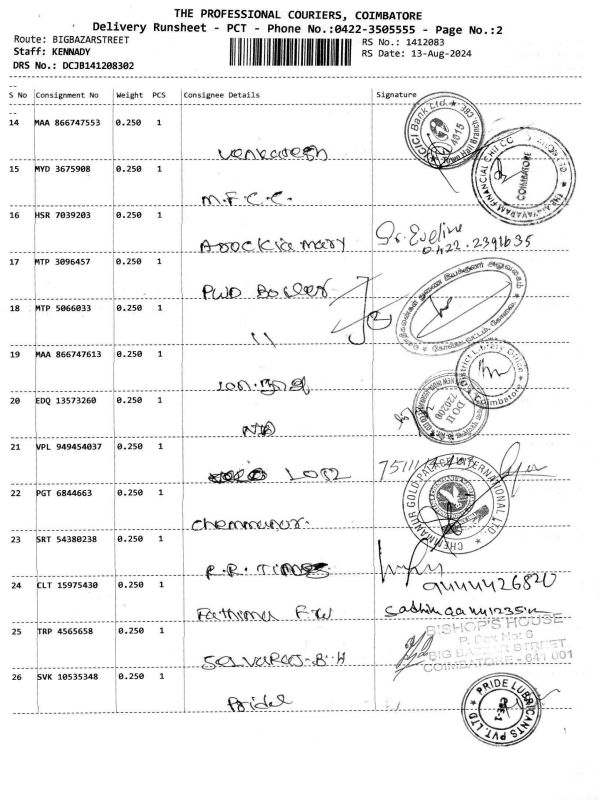 THE PROFESSIONAL COURIERS, COIMBATORE
Delivery Runsheet - PCT - Phone No.:0422-3505555 - Page No.:2
Route: BIGBAZARSTREET
RS No.: 1412083
Staff: KENNADY
RS Date: 13-Aug-2024
DRS No.: DCJB141208302
S No Consignment No Weight PCS Consignee Details Signature
14 MAA 866747553 0.250 1
ICICI Bank Ltd.
4015
Venkatesh
15 MYD 3675908 0.250 1
COIMBATORE
M.F.C.C.
16 HSR 7039203 0.250 1
Sr. Eveline
Arockiamary
0422-2391635
17 MTP 3096457 0.250 1
PWD
18 MTP 5066033 0.250 1
11
19 MAA 866747613 0.250 1
District Library Office
Coimbatore
20 EDQ 13573260 0.250 1
DO II
720200
21 VPL 949454037 0.250 1
22 PGT 6844663 0.250 1
CHEMMANUR GOLD PALACE INTERNATIONAL LTD.
Chemmanur.
23 SRT 54380238 0.250 1
P.R. Times
24 CLT 15975430 0.250 1
9444426820
Fathima
25 TRP 4565658 0.250 1
BISHOP'S HOUSE
P. Box No: 6
BIG BAZAAR STREET
COIMBATORE - 641 001
Selvaraj. B.H
26 SVK 10535348 0.250 1
PRIDE LUBRICANTS PVT. LTD
CBE-1
Pride